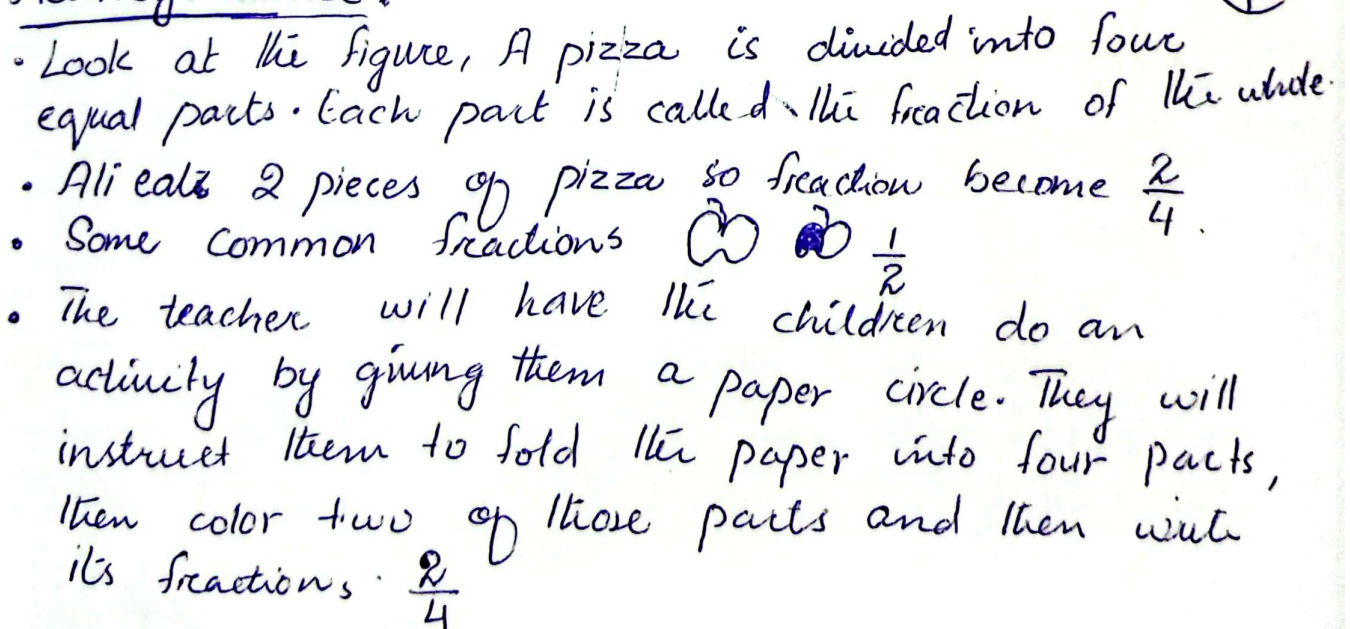 • Look at the figure, A pizza is divided into four
equal parts. Each part is called the fraction of the whole.
• Ali eats 2 pieces of pizza so fraction become 2/4.
• Some common fractions 1/2
• The teacher will have the children do an
activity by giving them a paper circle. They will
instruct them to fold the paper into four parts,
then color two of those parts and then write
its fractions. 2/4